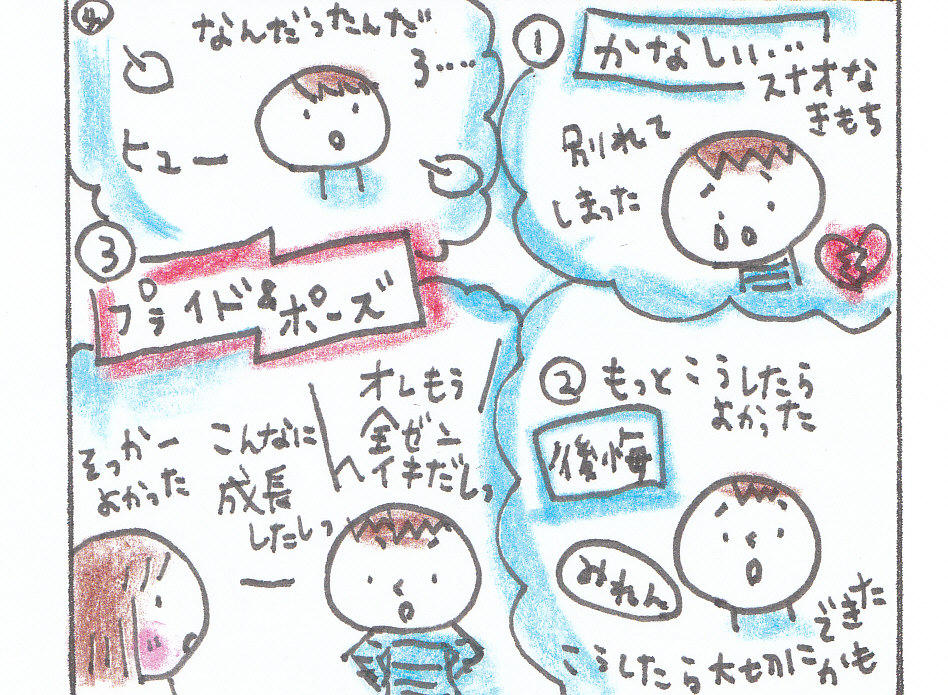 ①
かなしい…
スナオな
きもち
別れて
しまった
② もっとこうしたら
よかった
後悔
みれん
こうしたら大切にかも
できた
③
プライド&
ポーズ
オレもう
全ゼン
ヘイキだしっ
こんなに
成長
したしっ
そっかー
よかった
④
なんだったんだ
ろ……
ヒュー